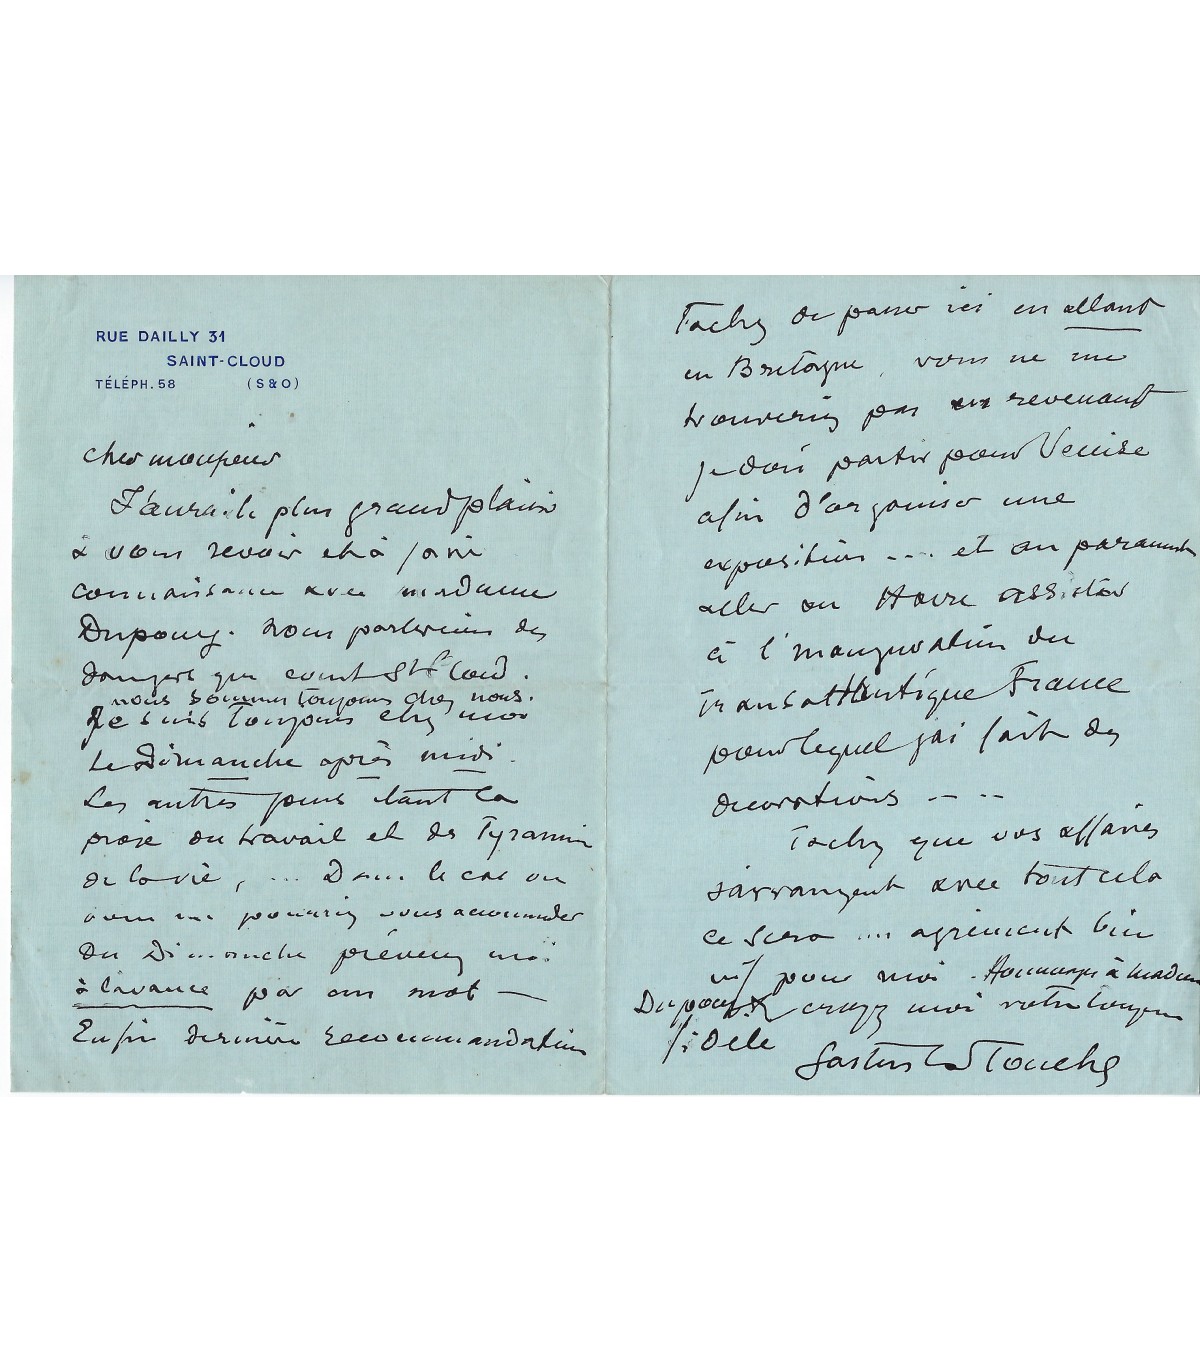 RUE DAILLY 31
SAINT-CLOUD
TÉLÉPH. 58 (S & O)
cher monsieur
J'aurai le plus grand plaisir
à vous revoir et à faire
connaissance avec madame
Dupouy. Nous parlerons des
dangers que court St Cloud.
nous sommes toujours chez nous.
Je suis toujours chez moi
le Dimanche après midi.
Les autres jours étant la
proie du travail et des Tyrannies
de la vie, ... Dans le cas où
vous ne pourriez vous accommoder
du Dimanche prévenez moi
à l'avance par un mot —
Enfin dernière recommandation
Tachez de passer ici en allant
en Bretagne, vous ne me
trouveriez pas en revenant
je dois partir pour Venise
afin d'organiser une
exposition .... et auparavant
aller au Havre assister
à l'inauguration du
transatlantique France
pour lequel j'ai fait des
décorations - - -
Tachez que vos affaires
s'arrangent avec tout cela
ce sera .... agrément bien
vif pour moi. Hommages à madame
Dupouy & croyez moi votre toujours
fidèle
Gaston La Touche